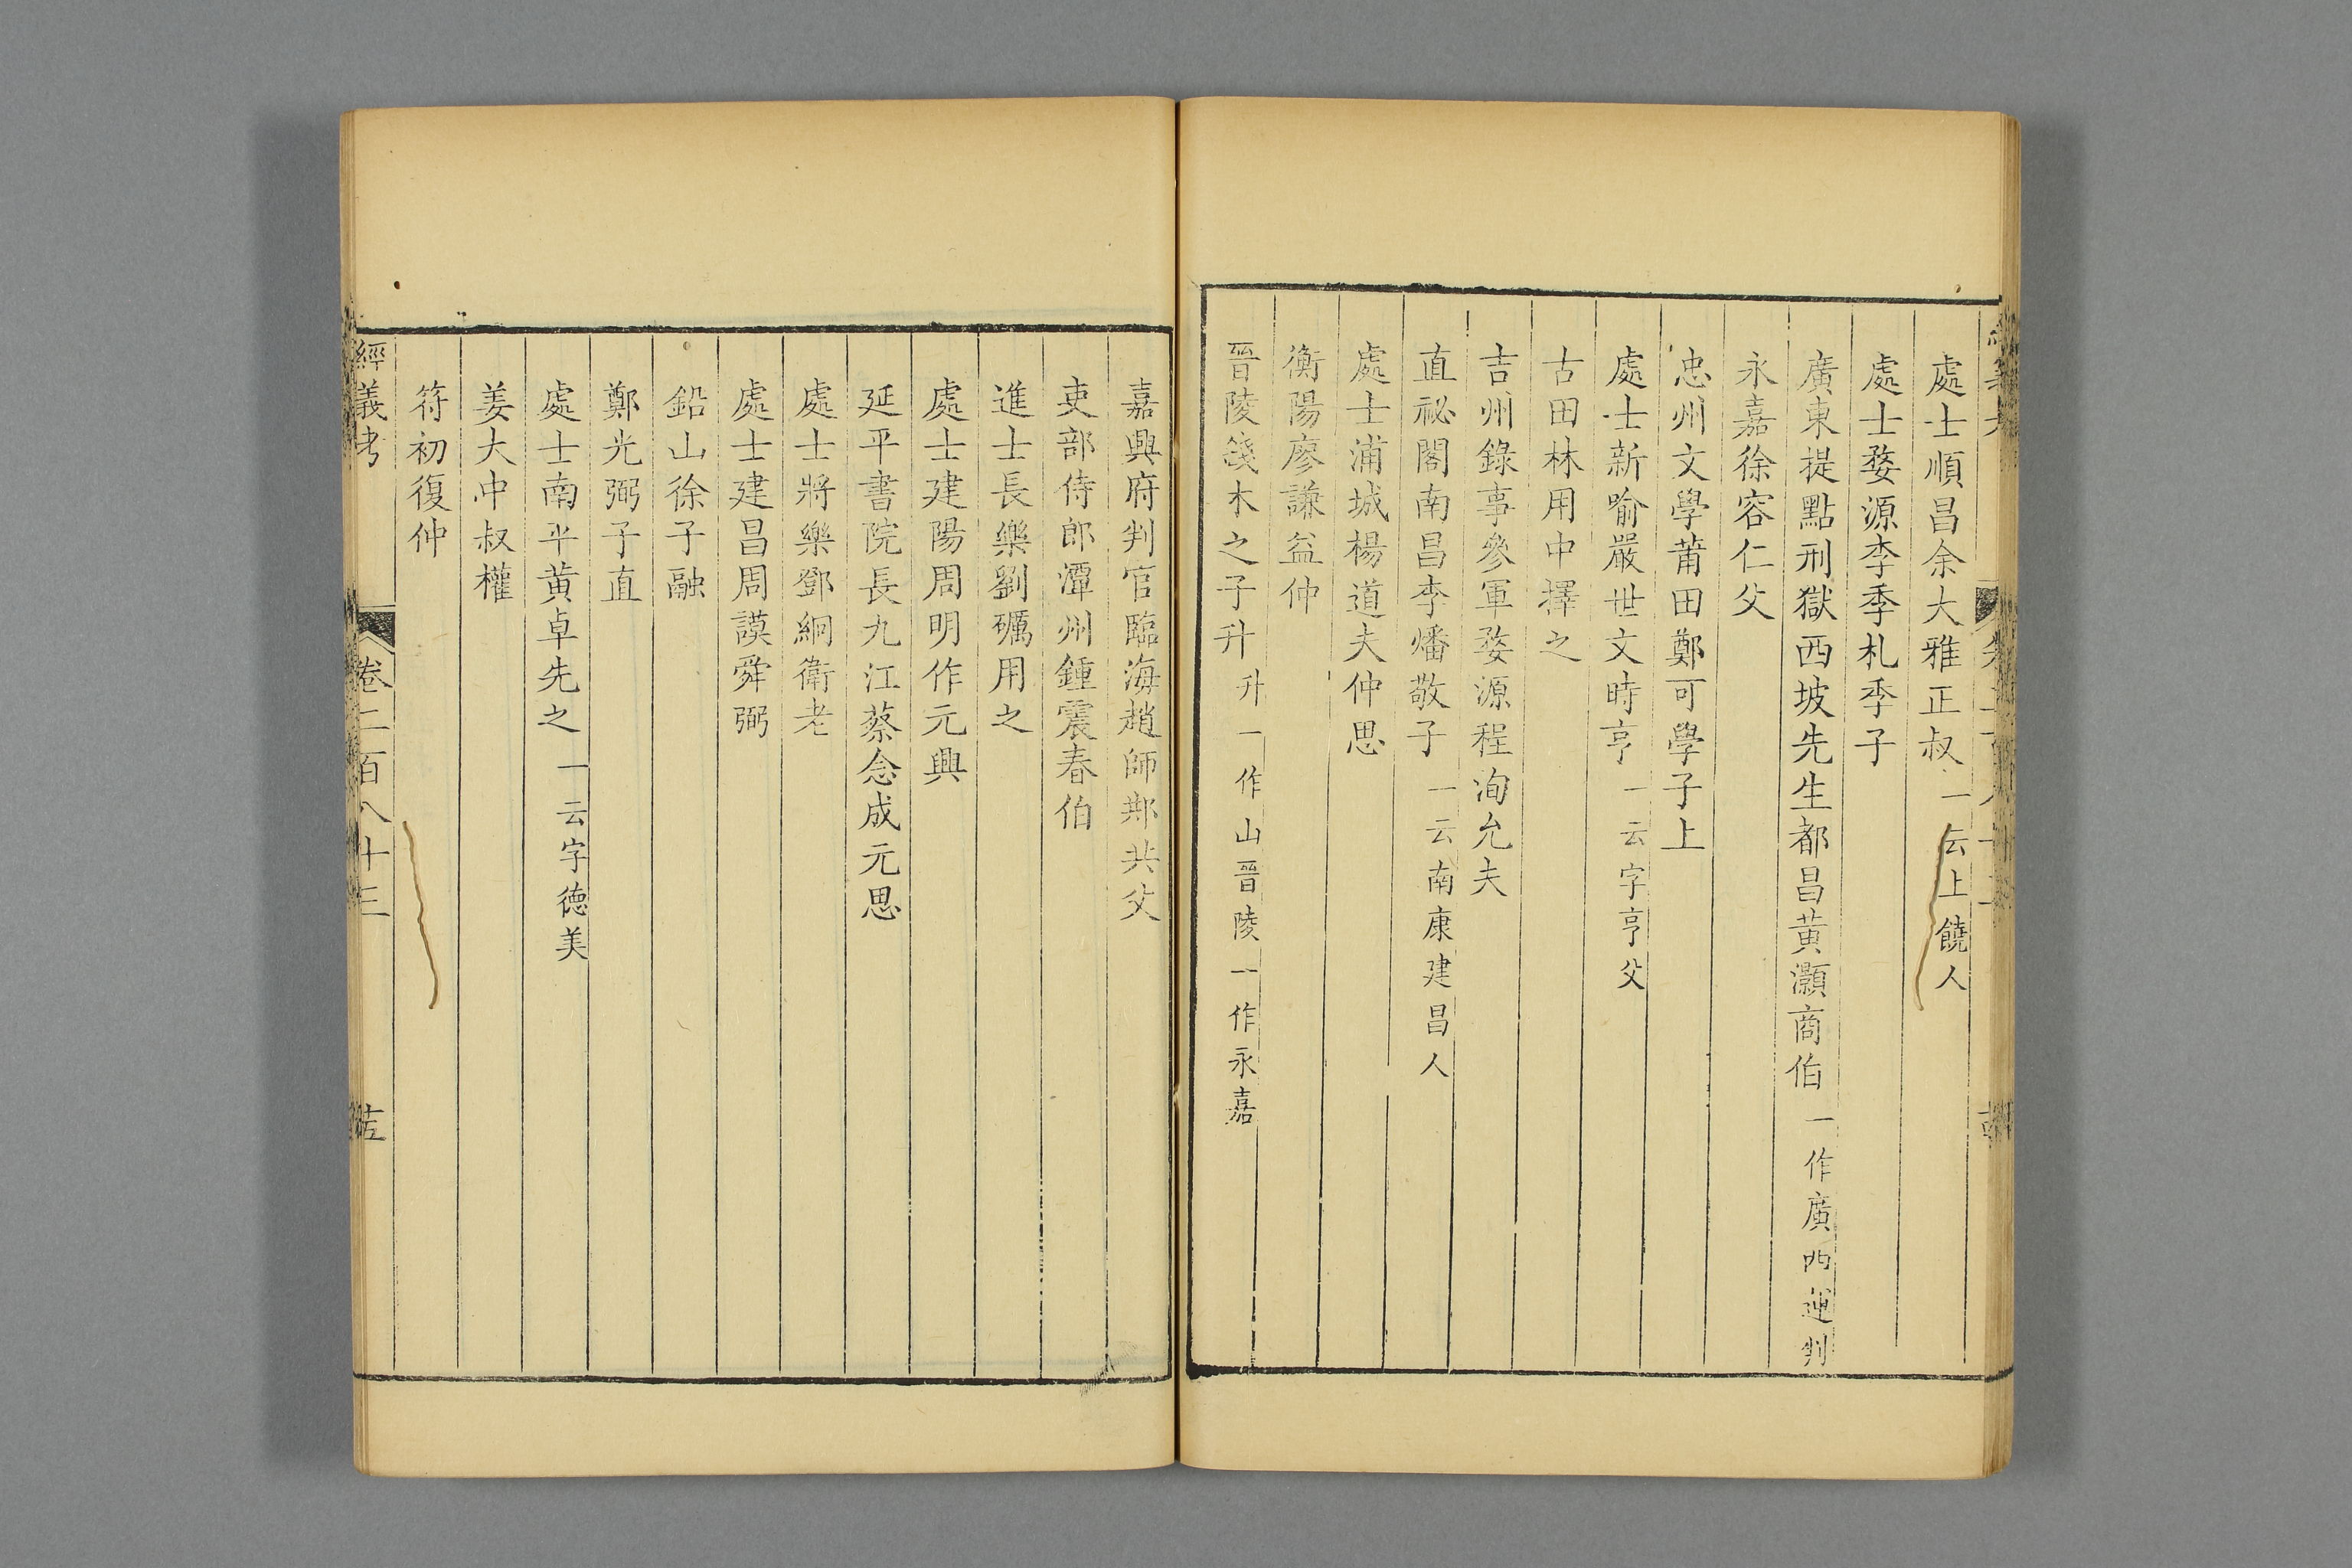 處士順昌余大雅正叔一云上饒人
處士婺源李季札季子
廣東提點刑獄西坡先生都昌黃灝商伯一作廣西運判
永嘉徐容仁父
忠州文學莆田鄭可學子上
處士新喻嚴世文時亨一云字亨父
古田林用中擇之
吉州錄事參軍婺源程洵允夫
直祕閣南昌李燔敬子一云南康建昌人
處士浦城楊道夫仲思
衡陽廖謙益仲
晉陵錢木之子升升一作山晉陵一作永嘉
嘉興府判官臨海趙師䢼共父
吏部侍郎潭州鍾震春伯
進士長樂劉礪用之
處士建陽周明作元興
延平書院長九江蔡念成元思
處士將樂鄧絅衛老
處士建昌周謨舜弼
鉛山徐子融
鄭光弼子直
處士南平黃卓先之一云字德美
姜大中叔權
符初復仲
經義考 卷二百八十三